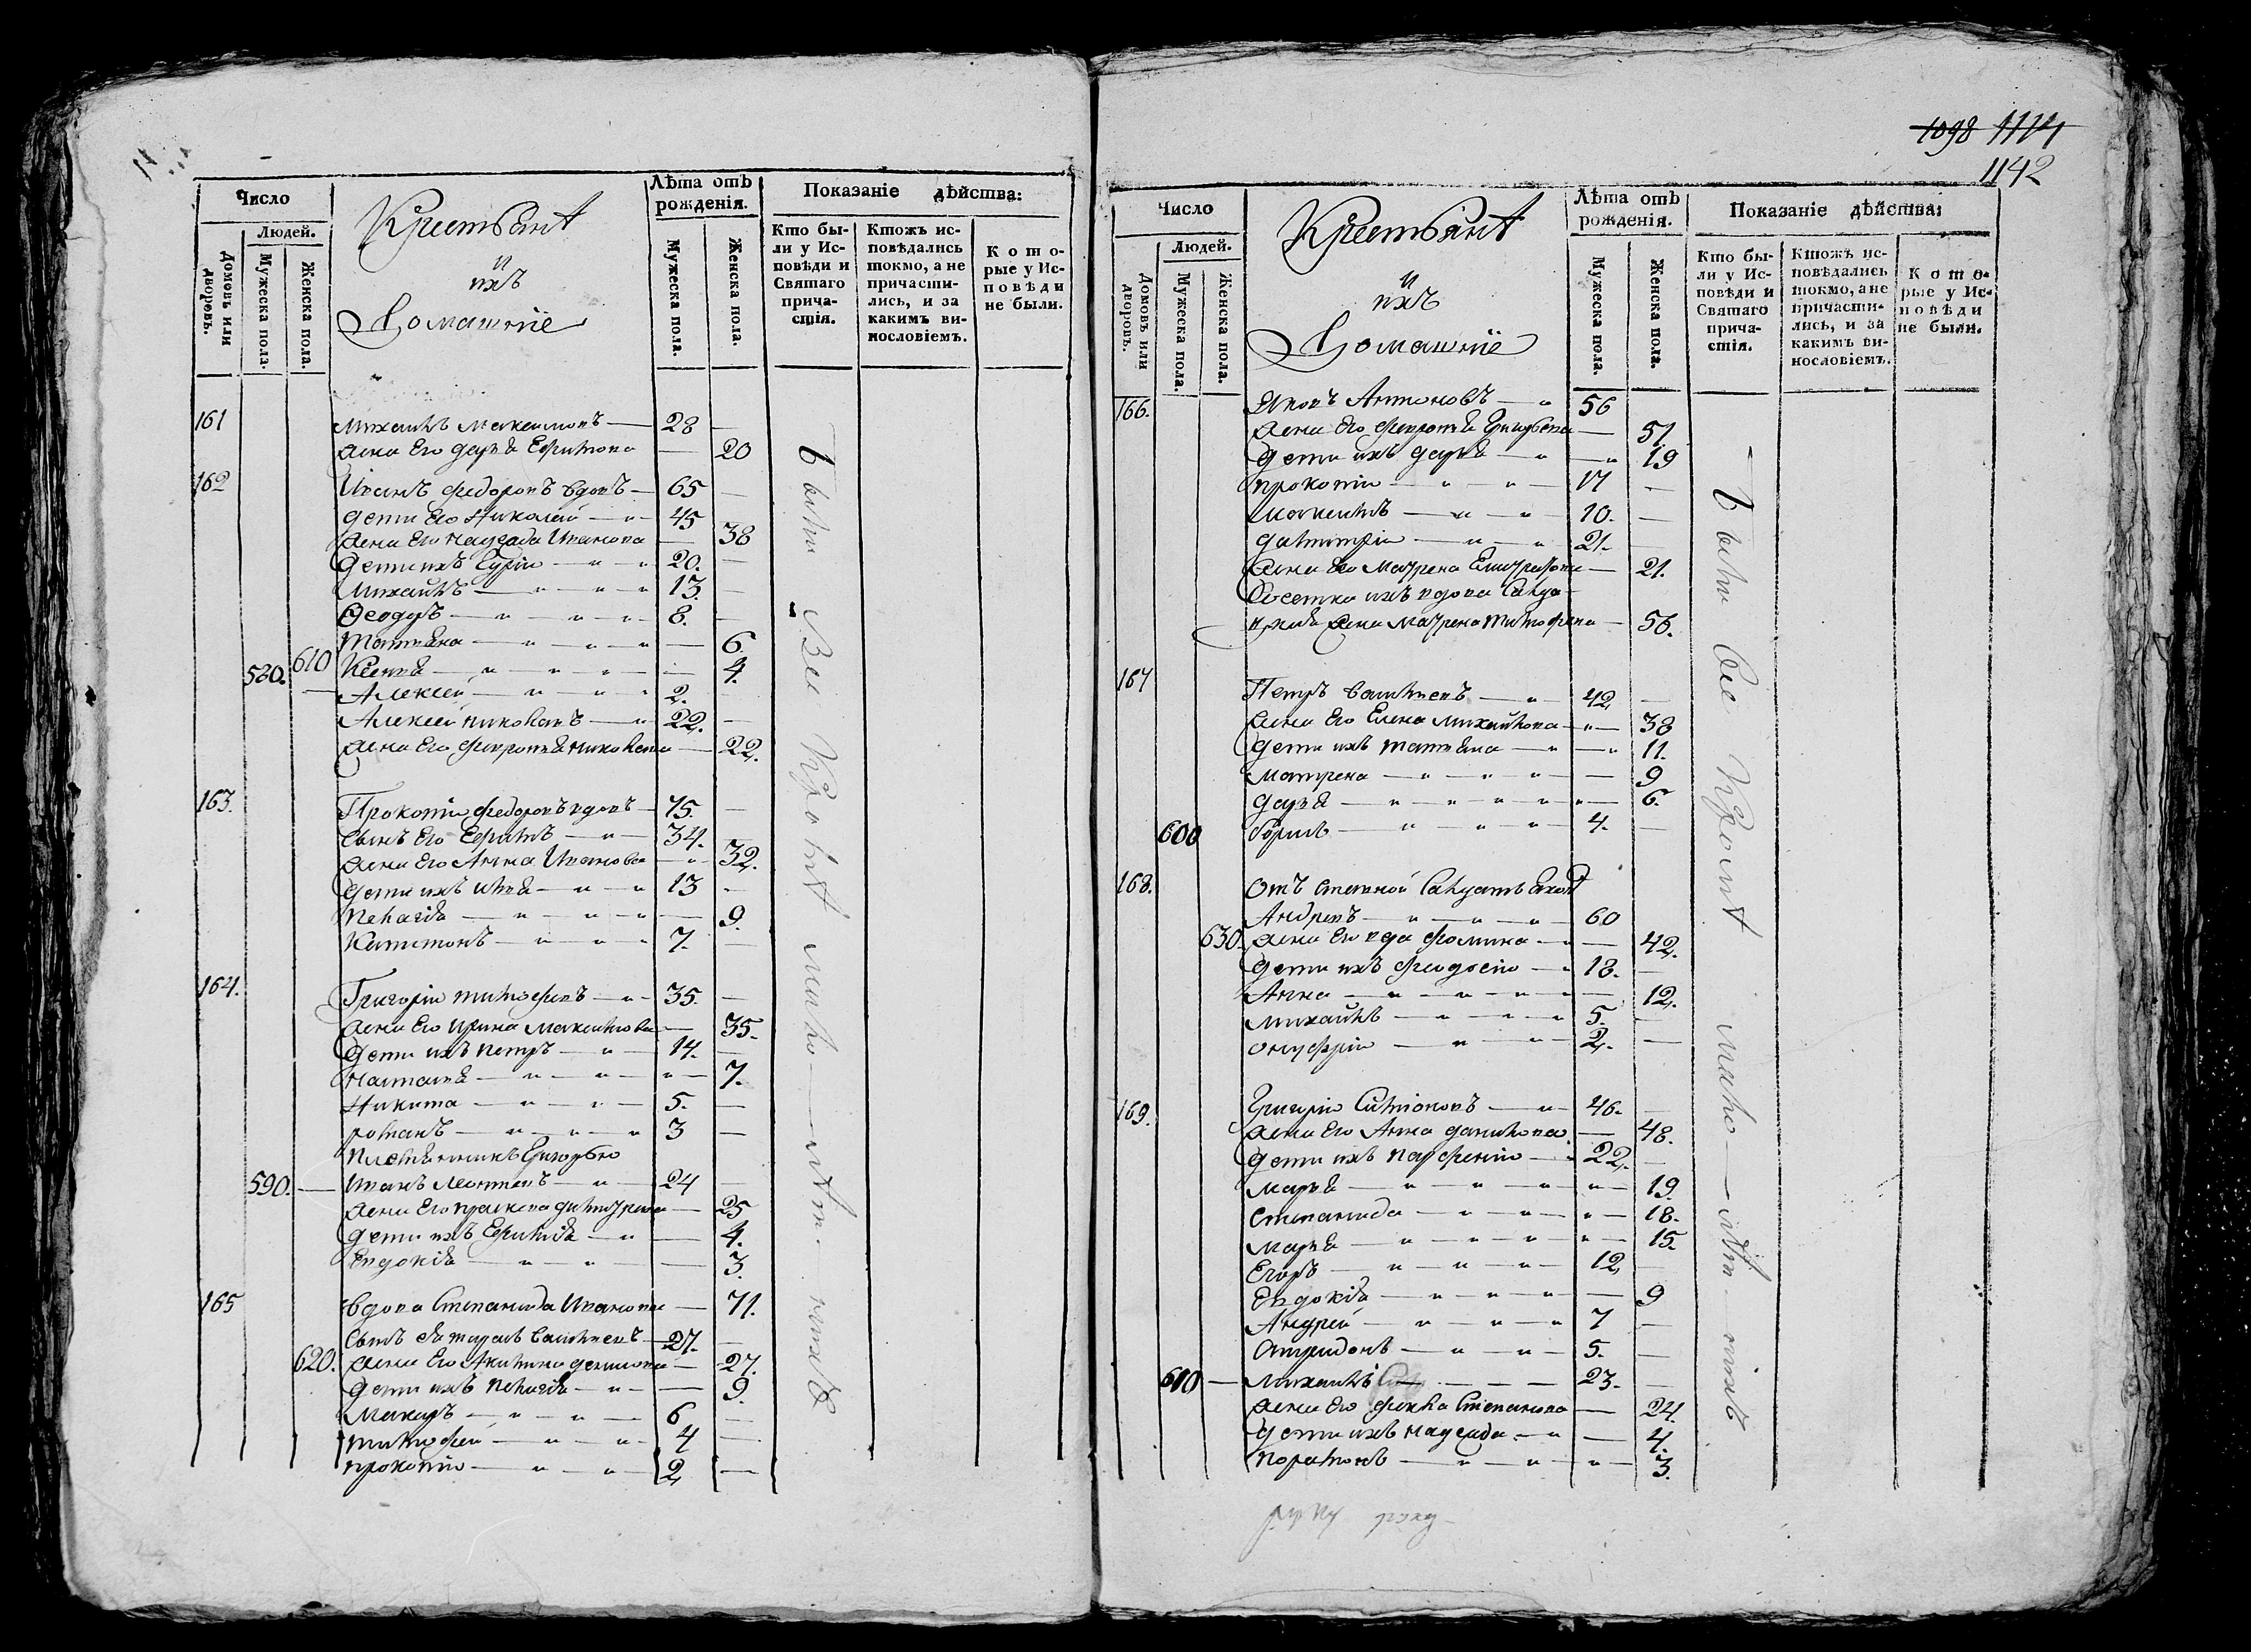 Число
Людей.
Домовъ или дворовъ.
Мужеска пола.
Женска пола.
Крестьянѣ
и
ихъ
Домашніе
Лѣта отъ рожденія.
Мужеска пола.
Женска пола.
Показаніе дѣйства:
Кто бы-
ли у Ис-
повѣди и
Святаго
прича-
стія.
Ктожъ ис-
повѣдались
токмо, а не
причасти-
лись, и за
какимъ ви-
нословіемъ.
К о т о -
рые у Ис-
п о в ѣ д и
не были.
161 Михаилъ Максимовъ 28
жена Его дарья Ефимова 20
162 Иванъ федоровъ вдовъ 65
дети Его Николай 45
жена Его надежда Иванова 38
дети ихъ Гурiи 20.
Михаилъ 13.
Феодоръ 8.
610 Татьяна 6
580. Ксенья 4.
Алексей 2.
Алексей 22.
жена Его февронья 22.
163. Прокопiи федоровъ вдовъ 75.
Сынъ Его Ефимъ 34.
жена Его Анна Иванова 32.
дети ихъ илья 13
пелагiя 9.
Капитонъ 7.
164. Григорiи тимофеевъ 35.
жена Его Ирина Максимова 35.
дети ихъ петръ 14.
наталья 7.
Никита 5.
романъ 3
племянникъ
590. Иванъ Леонтьевъ 24
жена Его прасковья дмитрiева 25
дети ихъ Ефимiя 4.
Евдокiя 3.
165 вдова Степанида Иванова 71.
Сынъ васильевъ 27.
620. жена Его Акилина денисова 27.
дети ихъ пелагiя 9.
Макаръ 6
тимофей 4
прокопiи 2
были Все Кромѣ мало лѣтнихъ
1098 1114
1142
Число
Людей.
Домовъ или дворовъ.
Мужеска пола.
Женска пола.
Крестьянѣ
и
ихъ
Домашніе
Лѣта отъ рожденія.
Мужеска пола.
Женска пола.
Показаніе дѣйства:
Кто бы-
ли у Ис-
повѣди и
Святаго
прича-
стія.
Ктожъ ис-
повѣдались
токмо, а не
причасти-
лись, и за
какимъ ви-
нословіемъ.
К о т о -
рые у Ис-
п о в ѣ д и
не были.
166. Антоновъ 56
жена Его февронья 51
дети ихъ дарья 19
прокопiи 17
Максимъ 10.
димитрiи 21.
жена Его Матрена 21.
ихъ вдова
жена Матрена тимофеева 56.
167 Петръ васильевъ 42
жена Его Елена михайлова 38
дети ихъ татьяна 11.
матрена 9
дарья 6.
600 борисъ 4.
168. Отъ
Андреевъ 60
630. жена Его фомина 42.
дети ихъ феодосiи 18.
Анна 12.
михаилъ 5.
онуфрiи 2.
169. григорiи Симоновъ 46.
жена Его Анна данилова 48.
дети ихъ парфенiи 22.
марья 19.
степанида 18.
марья 15.
Егоръ 12
Евдокiя 9
Андрей 7
спиридонъ 5.
610 михаилъ 23.
жена Его фекла Степанова 24.
дети ихъ надежда 4.
3.
были все Кромѣ мало лѣтнихъ
руку